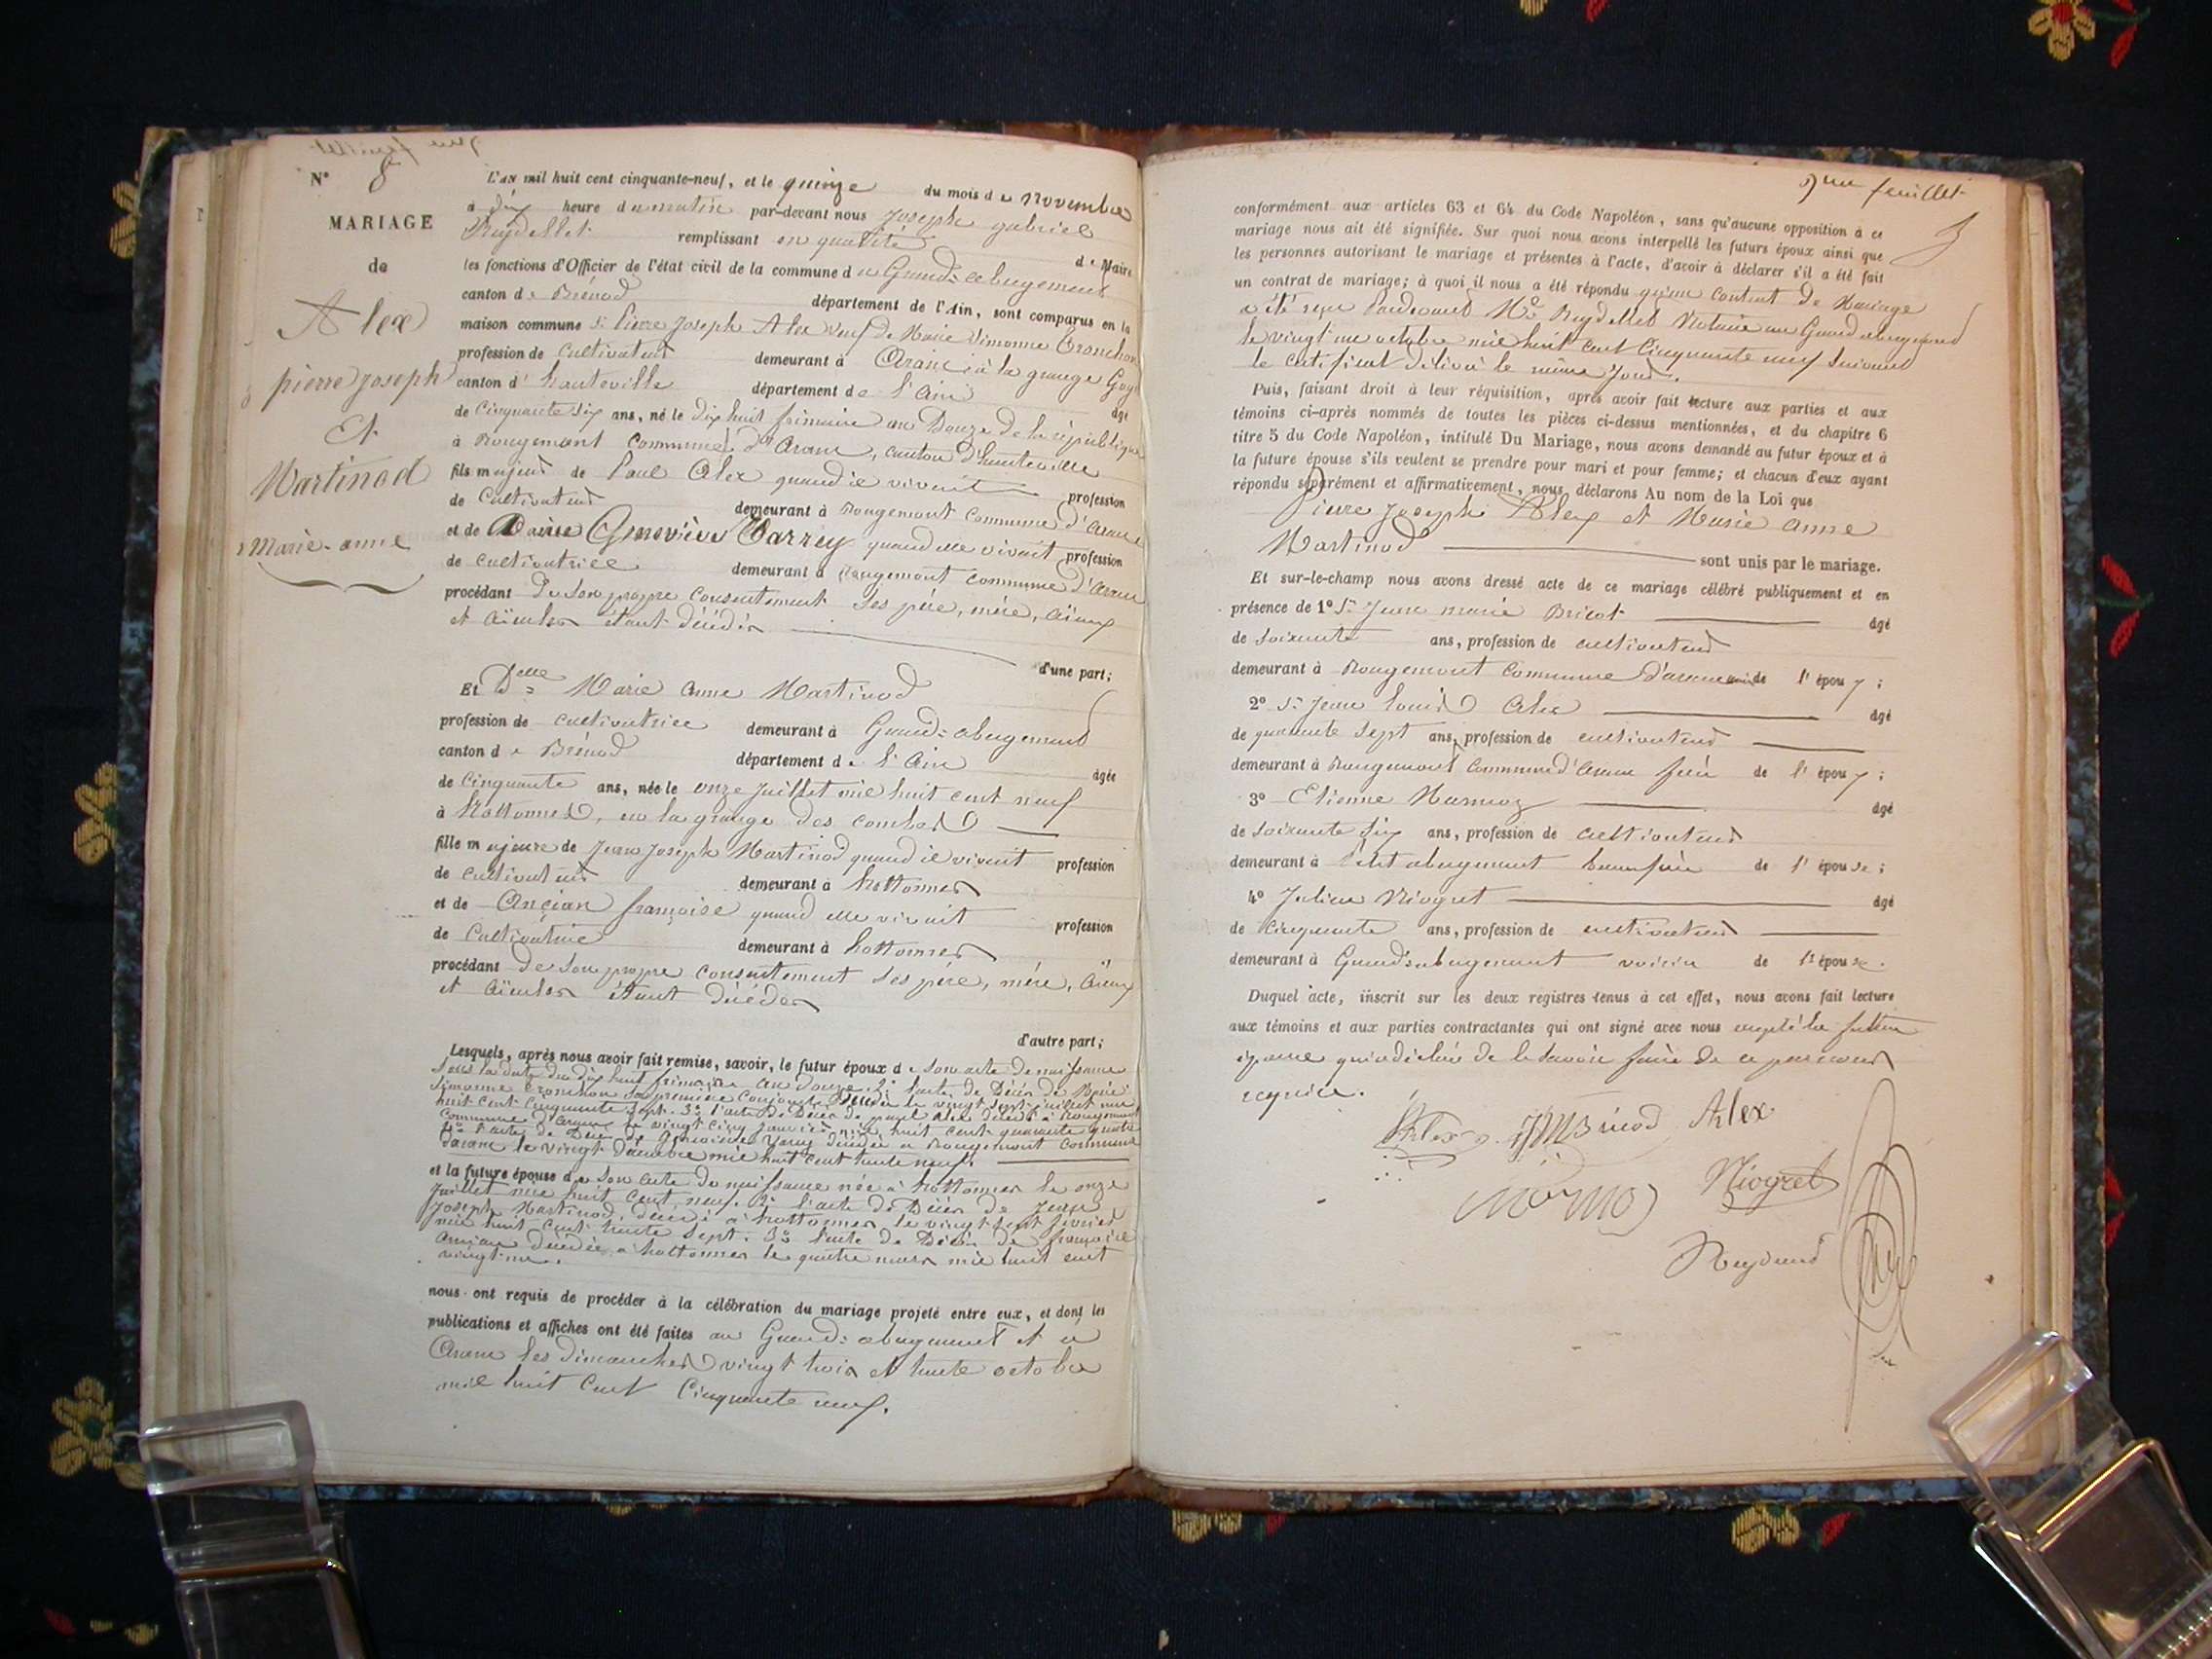 N° 8
MARIAGE
de
Alex
pierre joseph
Et
Martinod
Marie-anne
L'an mil huit cent cinquante-neuf, et le quinze du mois de novembre
à dix heure du matin par-devant nous Joseph gabriel
Reydellet remplissant en qualité de Maire
les fonctions d'Officier de l'état civil de la commune du Grand-abergement
canton de Brénod département de l'Ain, sont comparus en la
maison commune Sr Pierre Joseph Alex veuf de Marie Simonne Tronchon
profession de cultivateur demeurant à Aranc à la grange
canton d'hauteville département de l'Ain âgé
de cinquante six ans, né le dix huit frimaire an Douze de la république
à Rougemont commune d'Aranc, canton d'hauteville
fils majeur de Paul Alex quand il vivait profession
de cultivateur demeurant à Rougemont commune d'aranc
et de Geneviève Varrey quand elle vivait profession
de cultivatrice demeurant à Rougemont commune d'aranc
procédant de son propre consentement ses père, mère, aïeux
et aïeules étant décédés
d'une part;
Et Delle Marie anne Martinod
profession de cultivatrice demeurant à Grand-abergement
canton de Brénod département de l'Ain âgée
de cinquante ans, née le onze juillet mil huit cent neuf
à hottonnes, en la grange des combes
fille majeure de Jean Joseph Martinod quand il vivait profession
de cultivateur demeurant à hottonnes
et de Ancian françoise quand elle vivait profession
de cultivatrice demeurant à hottonnes
procédant de son propre consentement ses père, mère, aïeux
et aïeules étant décédés
d'autre part;
Lesquels, après nous avoir fait remise, savoir, le futur époux de son acte de naissance
sous la date du dix huit frimaire an douze. 2° l'acte de Décès de Marie
Simonne Tronchon sa première conjointe décédée le vingt sept juillet mil
huit cent cinquante sept. 3° l'acte de Décès de paul alex décédé à Rougemont
commune d'aranc le vingt cinq janvier mil huit cent quarante quatre
4° l'acte de Décès de Geneviève Varey décédée à Rougemont commune
d'aranc le vingt décembre mil huit cent trente neuf.
et la future épouse de son acte de naissance née à hottonnes le onze
juillet mil huit cent neuf. 2° l'acte de Décès de Jean
Joseph Martinod, décédé à hottonnes le vingt sept février
mil huit cent trente sept. 3° l'acte de Décès de françoise
Ancian décédée à hottonnes le quatre mars mil huit cent
vingt un.
nous ont requis de procéder à la célébration du mariage projeté entre eux, et dont les
publications et affiches ont été faites au Grand-abergement et à
Aranc les dimanches vingt trois et trente octobre
mil huit cent cinquante neuf.
9me feuillet
conformément aux articles 63 et 64 du Code Napoléon, sans qu'aucune opposition à ce
mariage nous ait été signifiée. Sur quoi nous avons interpellé les futurs époux ainsi que
les personnes autorisant le mariage et présentes à l'acte, d'avoir à déclarer s'il a été fait
un contrat de mariage; à quoi il nous a été répondu qu'un contrat de Mariage
a été reçu Pardevant Me Reydellet Notaire au Grand abergement
le vingt un octobre mil huit cent cinquante neuf suivant
le certificat délivré le même jour.
Puis, faisant droit à leur réquisition, après avoir fait lecture aux parties et aux
témoins ci-après nommés de toutes les pièces ci-dessus mentionnées, et du chapitre 6
titre 5 du Code Napoléon, intitulé Du Mariage, nous avons demandé au futur époux et à
la future épouse s'ils veulent se prendre pour mari et pour femme; et chacun d'eux ayant
répondu séparément et affirmativement, nous déclarons Au nom de la Loi que
Pierre Joseph Alex et Marie anne
Martinod sont unis par le mariage.
Et sur-le-champ nous avons dressé acte de ce mariage célébré publiquement et en
présence de 1° Sr Jean marie Bricot âgé
de soixante ans, profession de cultivateur
demeurant à Rougemont commune d'aranc ami de l'époux;
2° Sr Jean Louis Alex âgé
de quarante sept ans, profession de cultivateur
demeurant à Rougemont commune d'aranc frère de l'époux;
3° Etienne âgé
de soixante six ans, profession de cultivateur
demeurant à Petit abergement beau frère de l'épouse;
4° Julien Niogret âgé
de cinquante ans, profession de cultivateur
demeurant à Grand-abergement voisin de l'épouse.
Duquel acte, inscrit sur les deux registres tenus à cet effet, nous avons fait lecture
aux témoins et aux parties contractantes qui ont signé avec nous excepté la future
épouse qui a déclaré ne le savoir faire de ce par nous
requise.
Alex Alex
Niogret